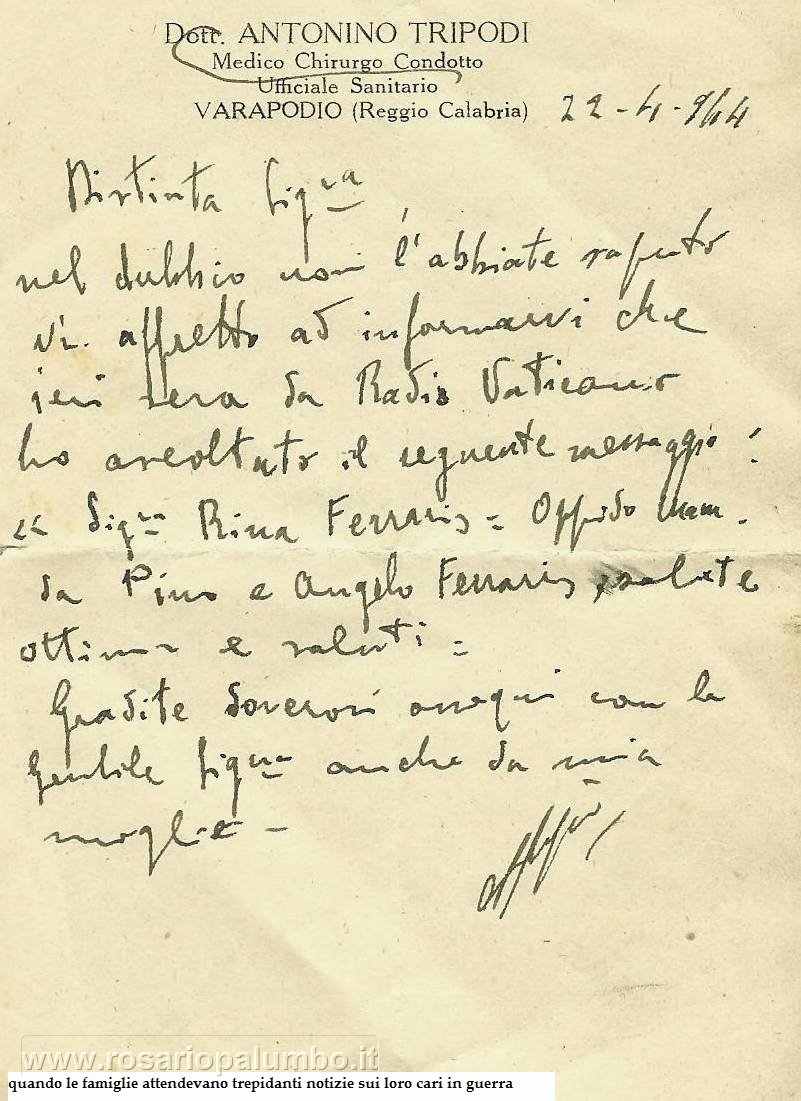 Dott. ANTONINO TRIPODI
Medico Chirurgo Condotto
Ufficiale Sanitario
VARAPODIO (Reggio Calabria)
22-4-944
Distinta Sigra
nel dubbio non l'abbiate saputo
Vi affretto ad informarvi che
ieri sera da Radio Vaticano
ho ascoltato il seguente messaggio:
"Sigra Rina Ferraris = Oppido Mam.
da Pino e Angelo Ferraris, salute
ottima e saluti =
Gradite doverosi ossequi con la
gentile Sigra anche da mia
moglie -
www.rosariopalumbo.it
quando le famiglie attendevano trepidanti notizie sui loro cari in guerra